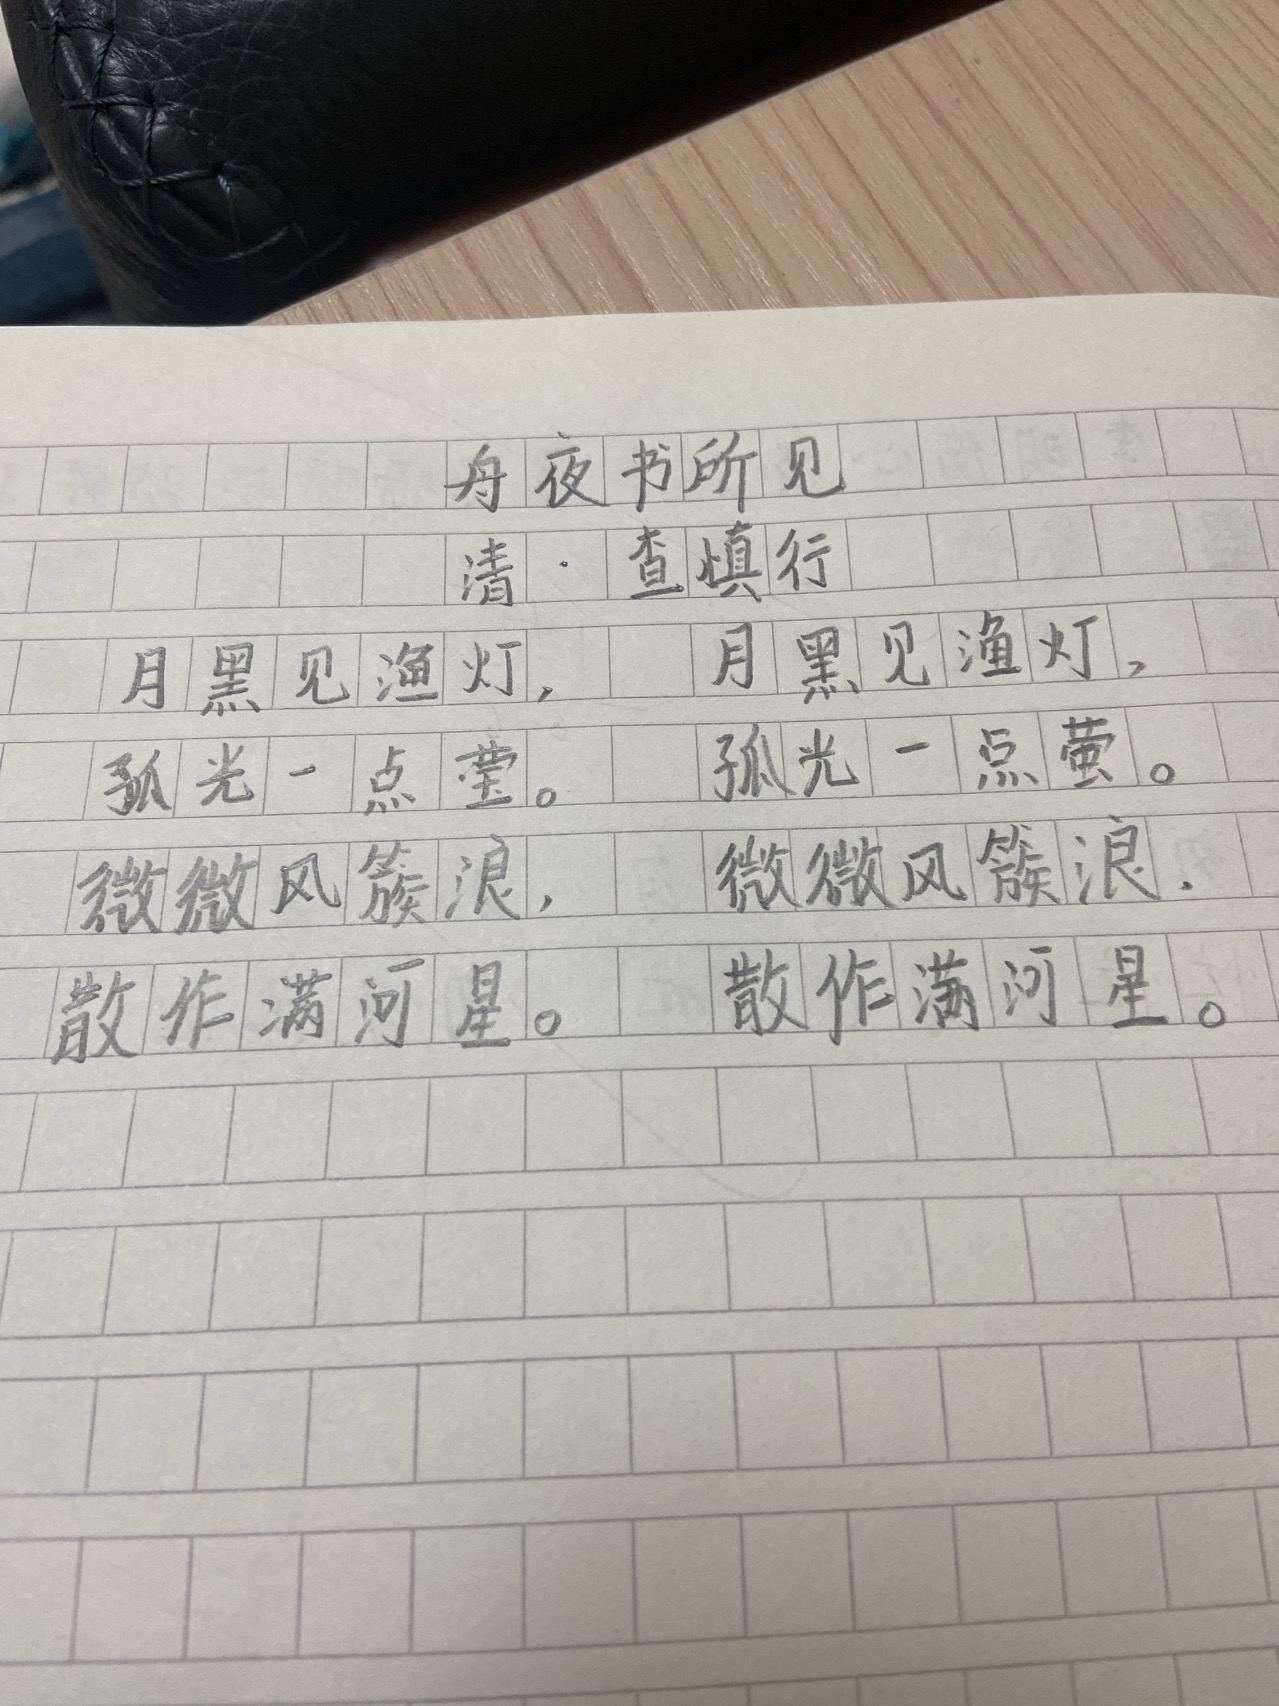 舟夜书所见
清·查慎行
月黑见渔灯， 月黑见渔灯，
孤光一点莹。 孤光一点萤。
微微风簇浪， 微微风簇浪.
散作满河星。 散作满河星。